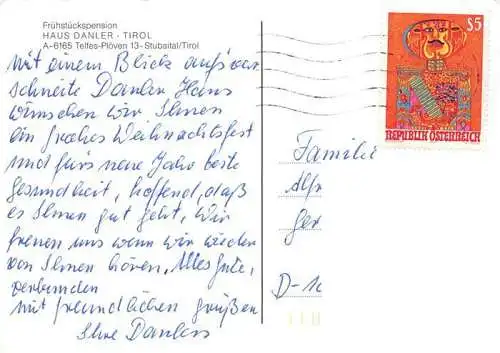 Frühstückspension
HAUS DANLER · TIROL
A-6165 Telfes-Plöven 13-Stubaital/Tirol
Mit einem Blick aufs
schneite Danler Haus
wünschen wir Ihnen
ein frohes Weihnachtsfest
und fürs neue Jahr beste
Gesundheit, hoffend, daß
es Ihnen gut geht, Wir
freuen uns wenn wir wieder
von Ihnen hören, Alles Gute,
verbunden
mit freundlichen Grüßen
Ihre Danlers
S5
REPUBLIK ÖSTERREICH
Familie
D-